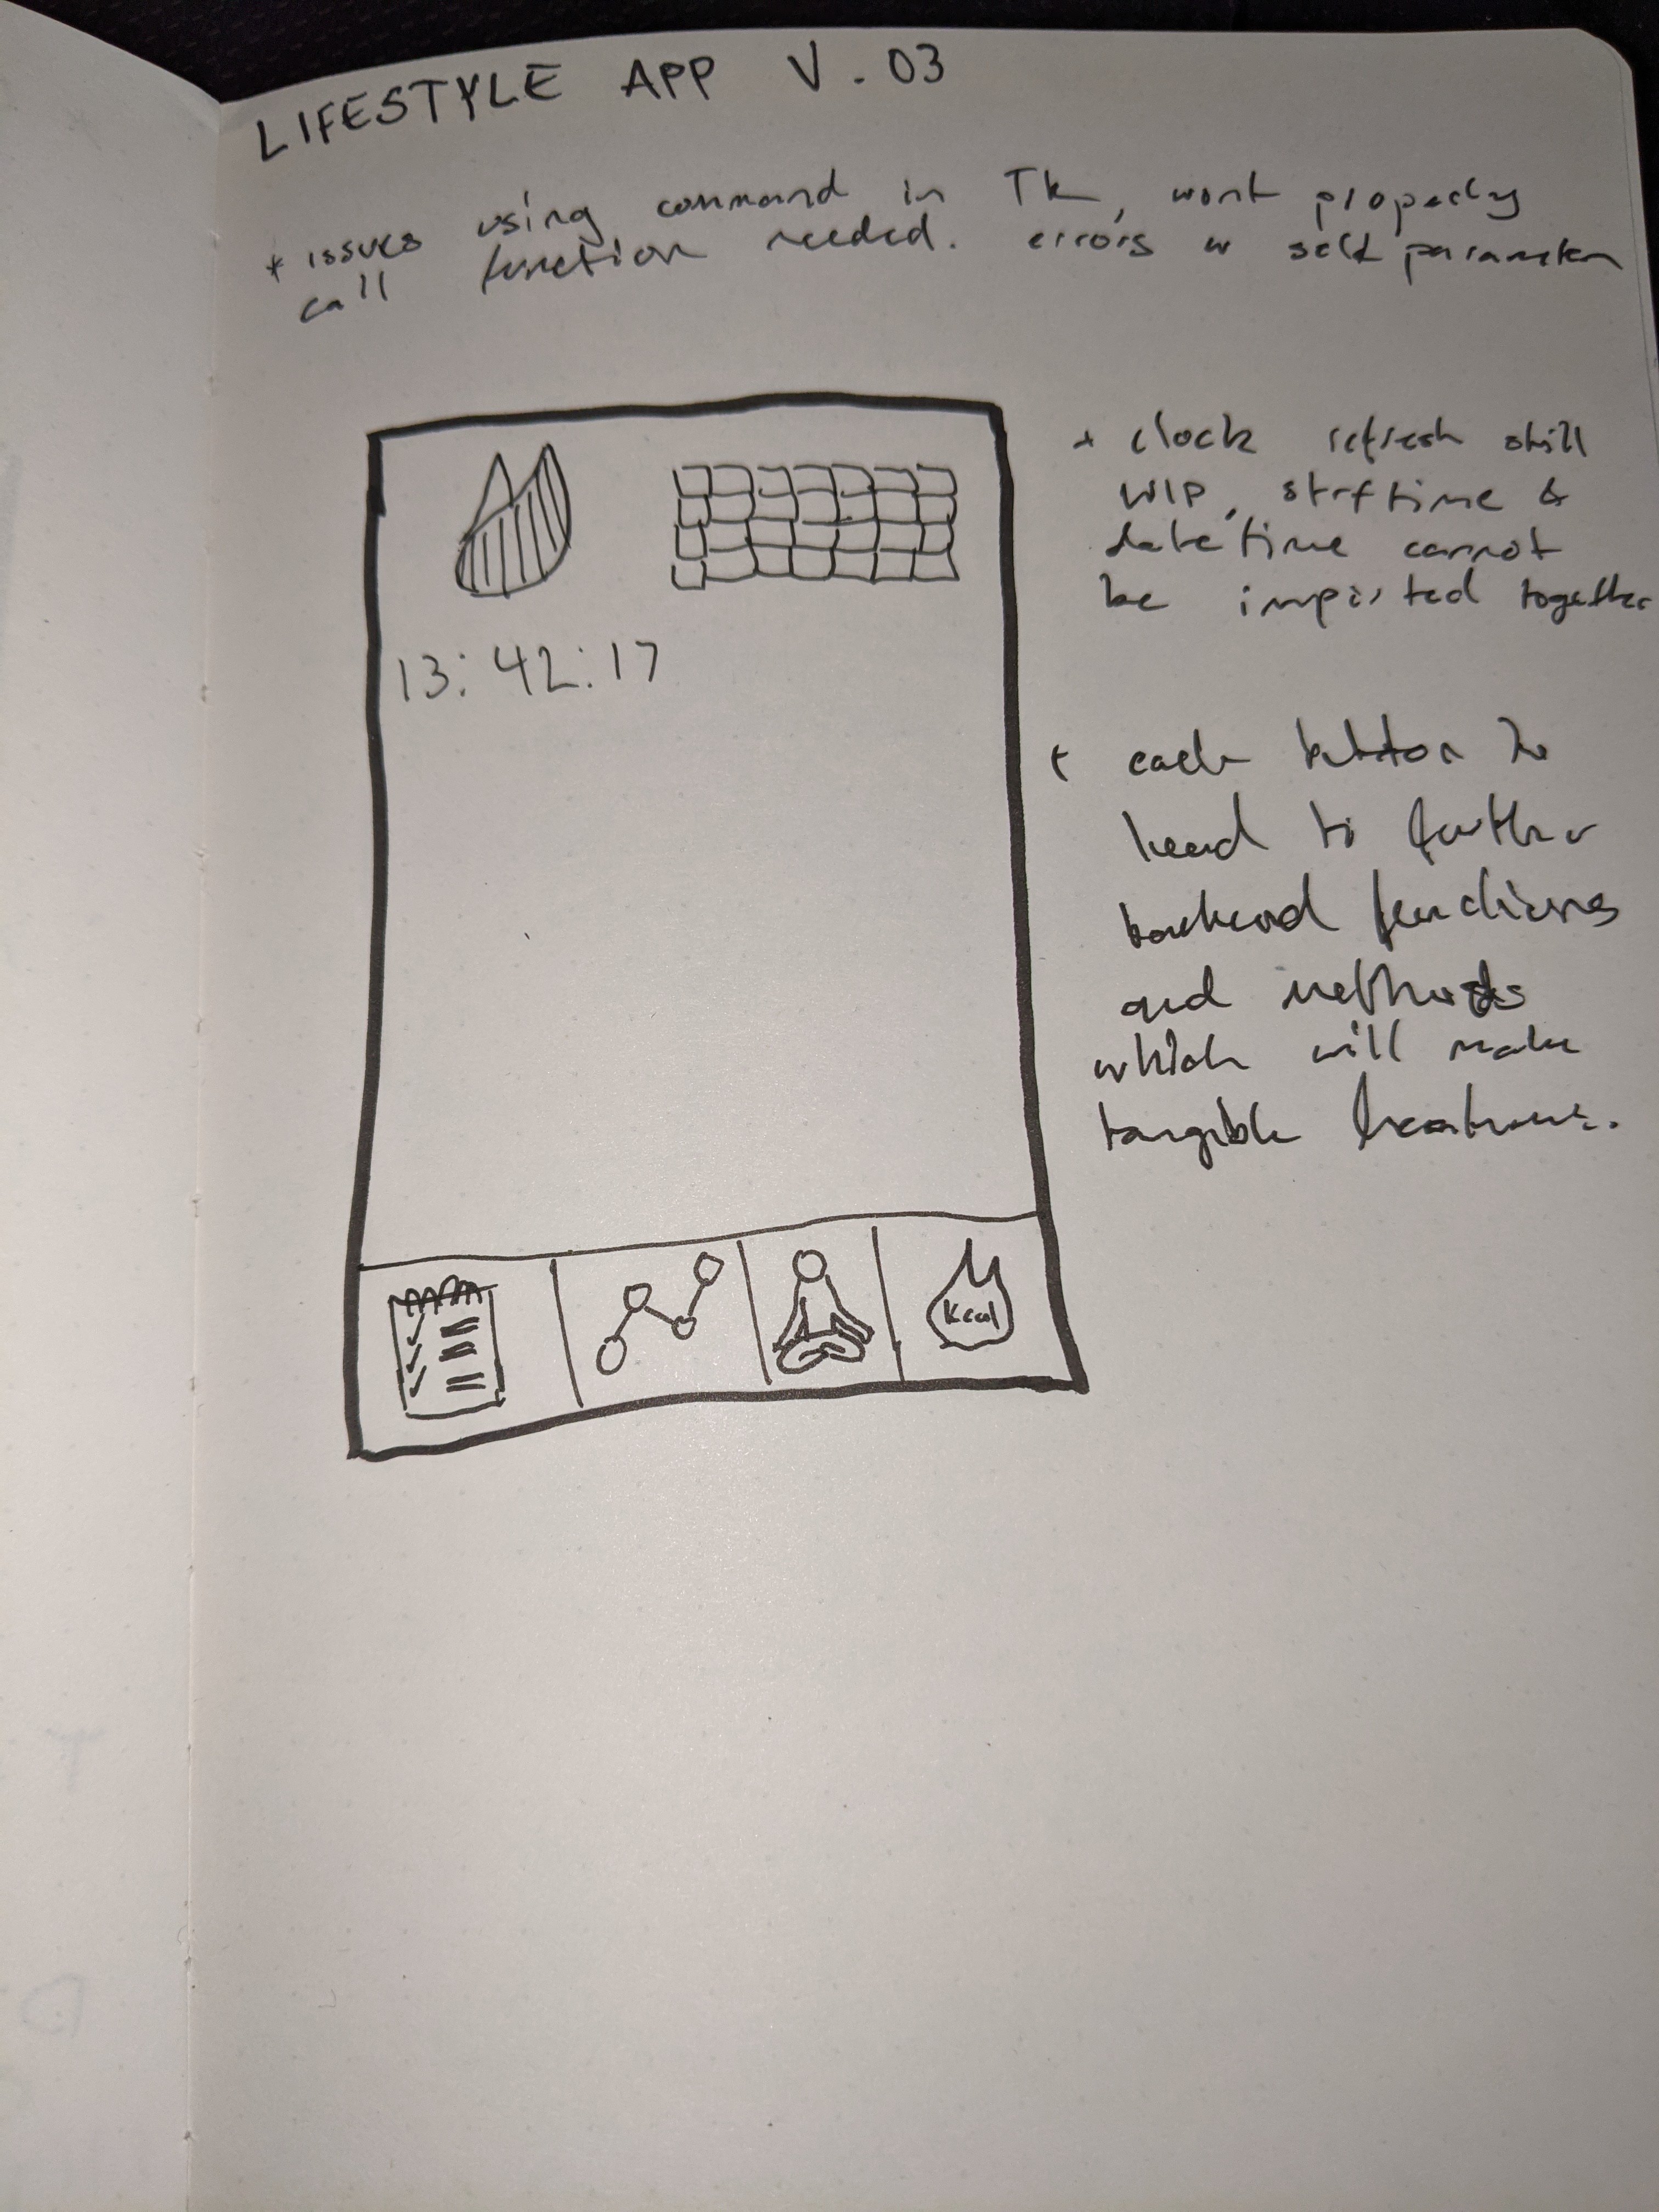 LIFESTYLE APP V.03
* issues using command in Tk, wont properly
call function needed. errors w self parameter
* clock refresh still
WIP, strftime &
datetime cannot
be imported together
13:42:17
* each button to
lead to further
backend functions
and methods
which will make
tangible features.
kcal